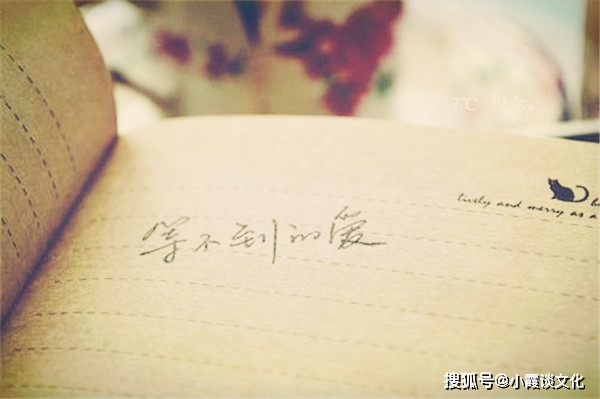 7℃ 想念。
lively and merry as a
等不到的爱
搜狐号@小霞谈文化